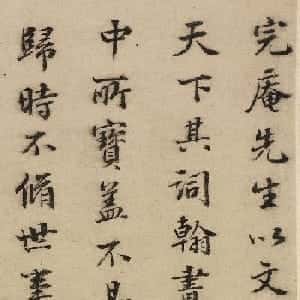 完庵先生以文
天下其詞翰書
中所寳盖不
歸時不脩世